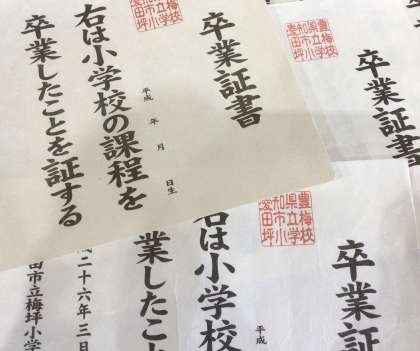 卒業証書
平成 年 月 日生
右は小学校の課程を
卒業したことを証する
卒業証書
豊梅校
県立学
和市小
田坪
卒業証
平成
右は小学校
業したこ
二十六年三
田市立梅坪小学